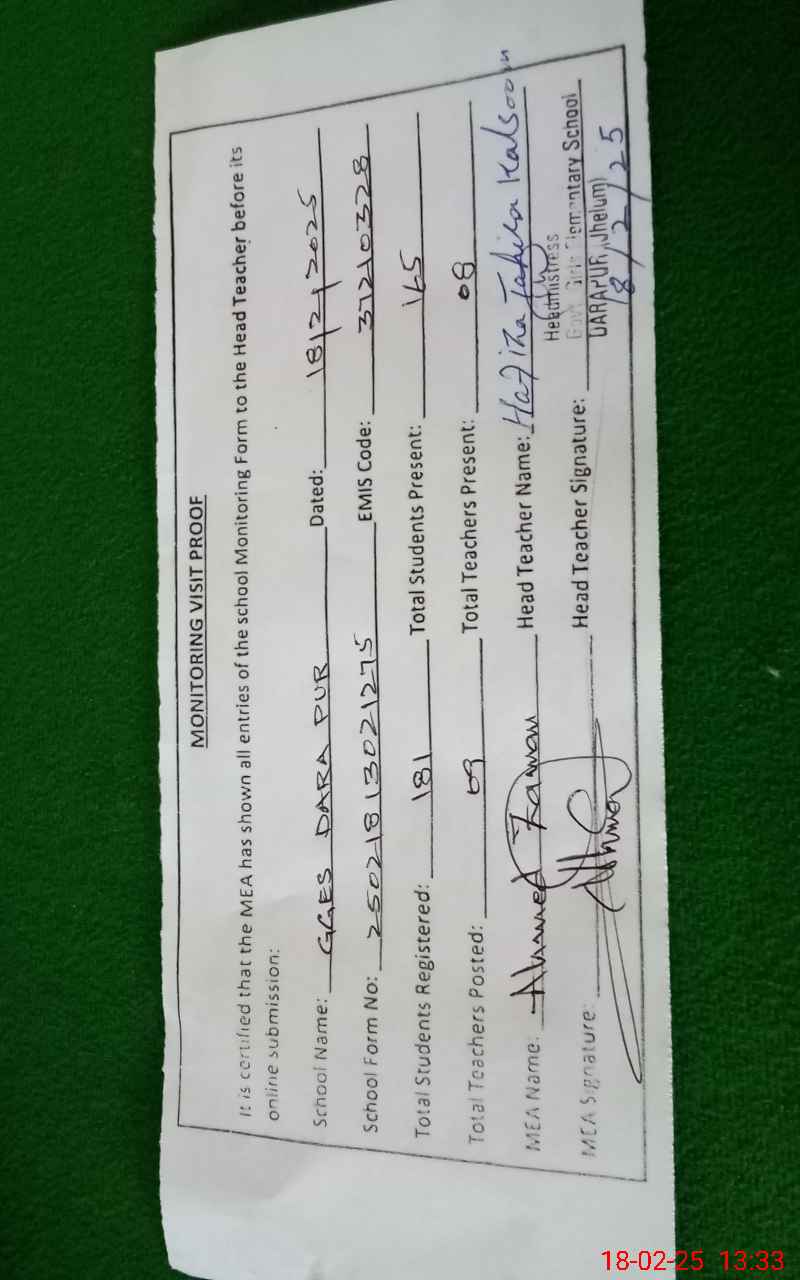 MONITORING VISIT PROOF
It is certified that the MEA has shown all entries of the school Monitoring Form to the Head Teacher before its
online submission:
School Name: GGES DARA PUR Dated: 18/2/2025
School Form No: 25021813021275 EMIS Code: 37210328
Total Students Registered: 181 Total Students Present: 165
Total Teachers Posted: 09 Total Teachers Present: 08
MEA Name: Ahmed Zaman Head Teacher Name: Hafiza Tahira Kalsoom
Headmistress
Govt. Girls Elementary School
MEA Signature: Head Teacher Signature: DARAPUR (Jhelum)
18/2/25
18-02-25 13:33